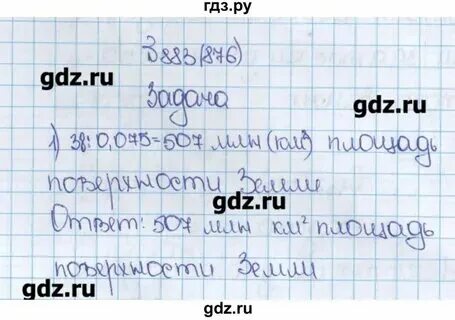 гдз.ру
В 883(876)
gdz.ru
gdz.ru
Задача
1) 38:0,075=507 млн (км²) площадь
gdz.ru
поверхности Земли
Ответ: 507 млн км² площадь
gdz.ru
gdz.ru
поверхности Земли